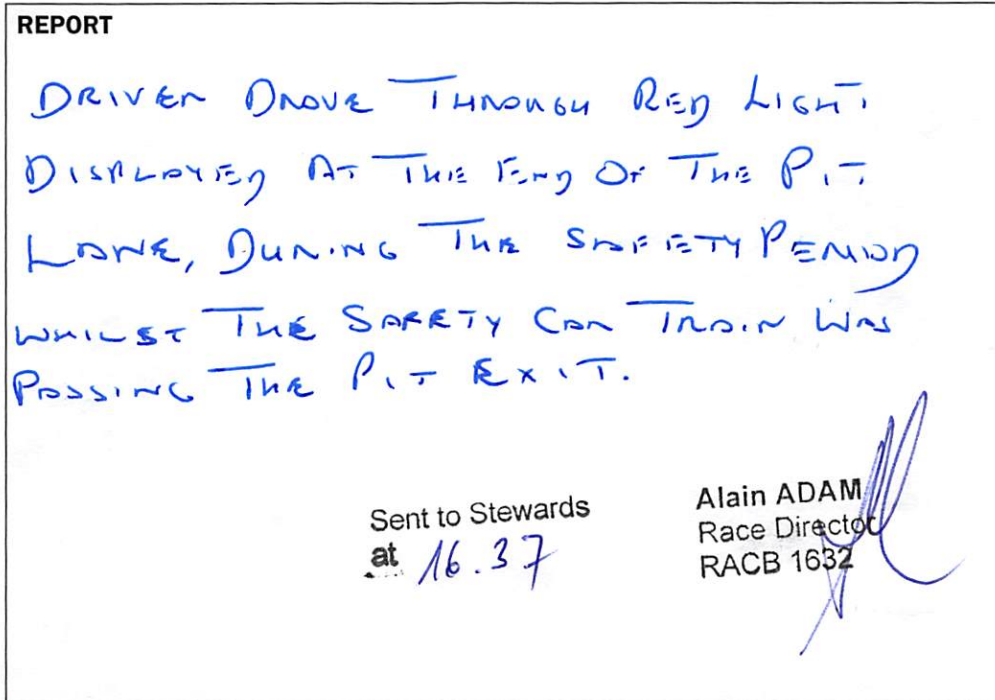 REPORT
DRIVER DROVE THROUGH RED LIGHT
DISPLAYED AT THE END OF THE PIT
LANE, DURING THE SAFETY PERIOD
WHILST THE SAFETY CAR TRAIN WAS
PASSING THE PIT EXIT.
Sent to Stewards
at 16.37
Alain ADAM
Race Director
RACB 1632